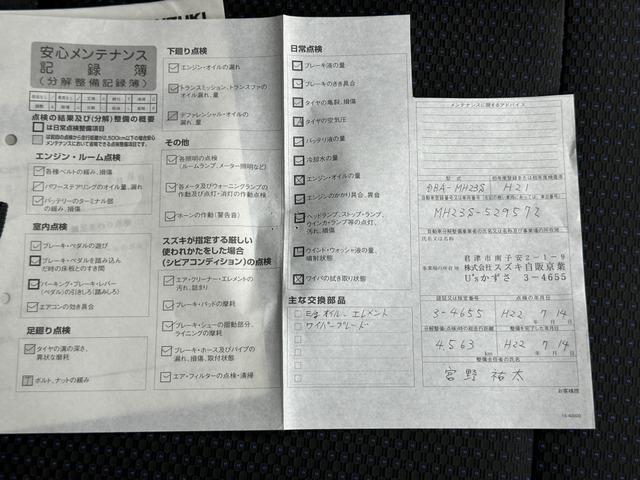 安心メンテナンス
記録簿
(分解整備記録簿)
点検の結果及び(分解)整備の概要
は日常点検整備項目
エンジン・ルーム点検
各種ベルトの緩み、損傷
パワーステアリングのオイル量、漏れ
バッテリーのターミナル部
の緩み、損傷
室内点検
ブレーキ・ペダルの遊び
ブレーキ・ペダルを踏み込ん
だ時の床板とのすき間
パーキング・ブレーキ・レバー
(ペダル)の引きしろ(踏みしろ)
エアコンの効き具合
足廻り点検
タイヤの溝の深さ、
異状な摩耗
ボルト、ナットの緩み
下廻り点検
エンジン・オイルの漏れ
トランスミッション、トランスファの
オイル漏れ、量
デファレンシャル・オイルの
漏れ、量
その他
各照明の点検
(ルームランプ、メーター照明など)
各メータ及びウォーニングランプの
作動及び点灯・消灯の作動点検
ホーンの作動(警告音)
スズキが指定する厳しい
使われかたをした場合
(シビアコンディション)の点検
エア・クリーナー・エレメントの
汚れ、詰まり
ブレーキ・パッドの摩耗
ブレーキ・シューの摺動部分、
ライニングの摩耗
ブレーキ・ホース及びパイプの
漏れ、損傷、取付状態
エア・フィルターの点検・清掃
日常点検
ブレーキ液の量
ブレーキのきき具合
タイヤの亀裂、損傷
タイヤの空気圧
バッテリ液の量
冷却水の量
エンジン・オイルの量
エンジンのかかり具合、異音
ヘッドランプ、ストップ・ランプ、
ウインカ・ランプ等の点灯、
汚れ、損傷
ウインド・ウォッシャ液の量、
噴射状態
ワイパの拭き取り状態
主な交換部品
E/g オイル、エレメント
ワイパーブレード
メンテナンスに関するアドバイス
型式
DBA-MH23S
H21
MH23S-529572
氏名又は名称
君津市南子安2-1-9
事業場の所在地
株式会社スズキ自販京葉
U'sかずさ 3-4655
認証又は検査番号
点検の年月日
3-4655
H22 7 14
整備を完了した年月日
4,563 km
H22 7 14
整備主任者の氏名
宮野 祐太
お客様控